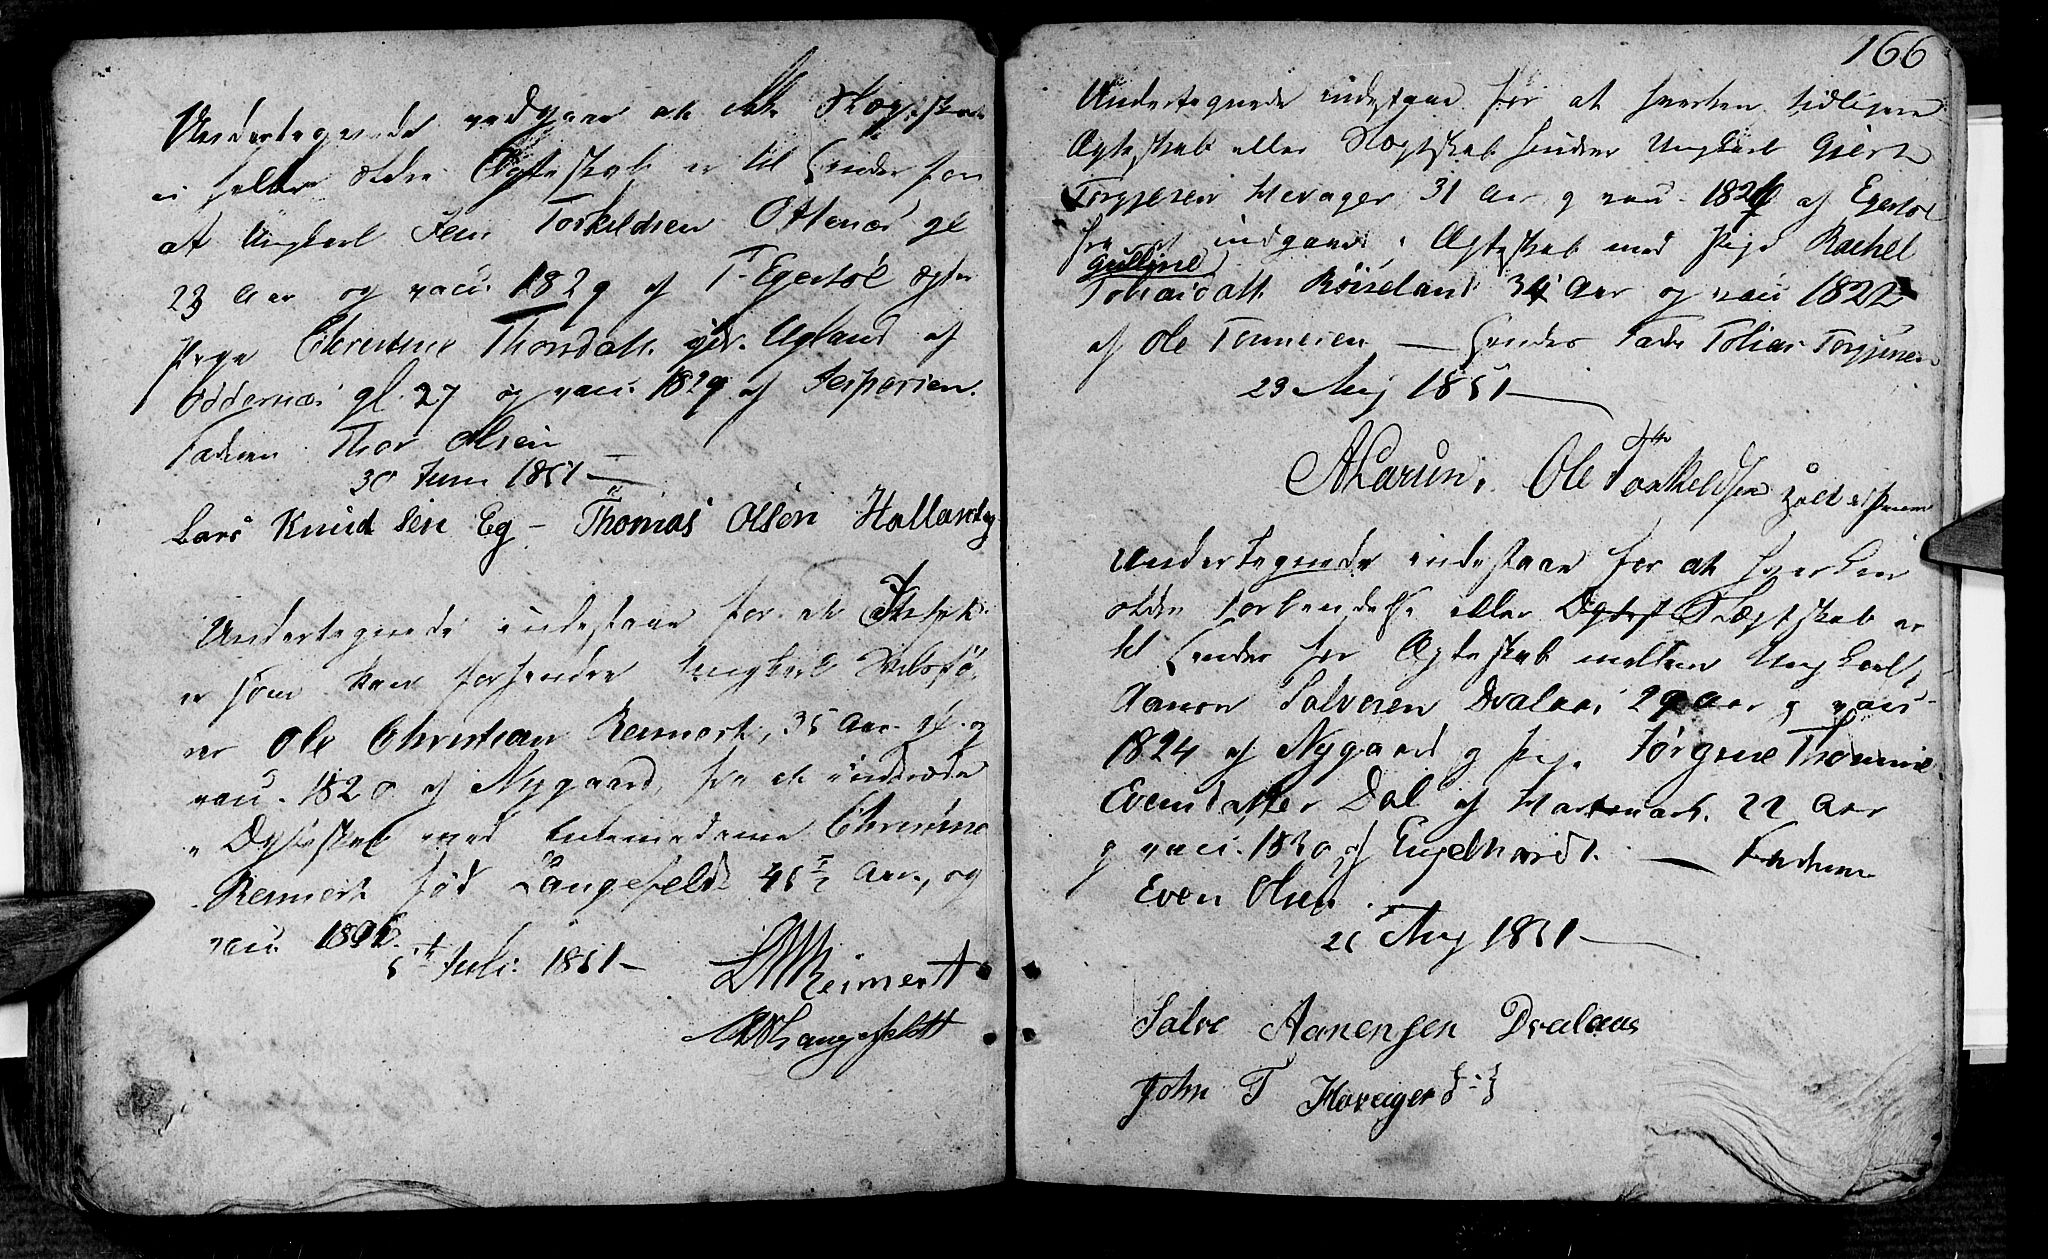 Undertegnede vedgaar at ikke Slægtskab
ei heller Ægteskab er til Hinder for
at Ungkarl Jens Torkildsen Otternæs gl
23 Aar og vacc. 1829 af T. Egertoe ægter
Pige Christine Thorsdatt. Ugland af
Oddernæs gl. 27 og vacc. 1829 af Jespersen.
Faderen Thor Olsen
30 Juni 1851
Lars Knudsen Eg - Thomas Olsen Hollandeg
Undertegnede indestaae for at Intet
er som kan forhindre Ungkarl
Ole Christian Reimert, 35 Aar gl. og
vacc. 1820 af Nygaard, fra at indtræde
i Ægteskab med Enkemadame Christine
Reimert fød Langefeldt 46 1/2 Aar, og
vacc.
5te Juli 1851
Reimert
Langefeldt
166
Undertegnede indestaae for at hverken tidligere
Ægteskab eller Slægtskab hindrer Ungkarl Gjert
Torgjersen Hevager 31 Aar og vacc. af Egertoe
fra at indgaae i Ægteskab med Pige Rachel
Gulline
Tobiasdatt. Røiseland 34 Aar og vacc. 1822
af Ole Tønnesen — Hendes Fader Tobias Torgjusen
23 Aug 1851
A Larsen. Ole Torkeldsen
Undertegnede indestaae for at hverken
anden Forbindelse eller Slægtskab er
til Hinder for Ægteskab mellem Ungkarl
Aanon Salvesen Dvalaas 29 Aar og vacc.
1824 af Nygaard og Pige Jørgine Thomine
Evensdatter Dal af Hartmark 22 Aar
og vacc. 1830 af Engelhardt. — Faderen
Even Olsen
26 Aug 1851
Salve Aanensen Dvalaas
John T Havager